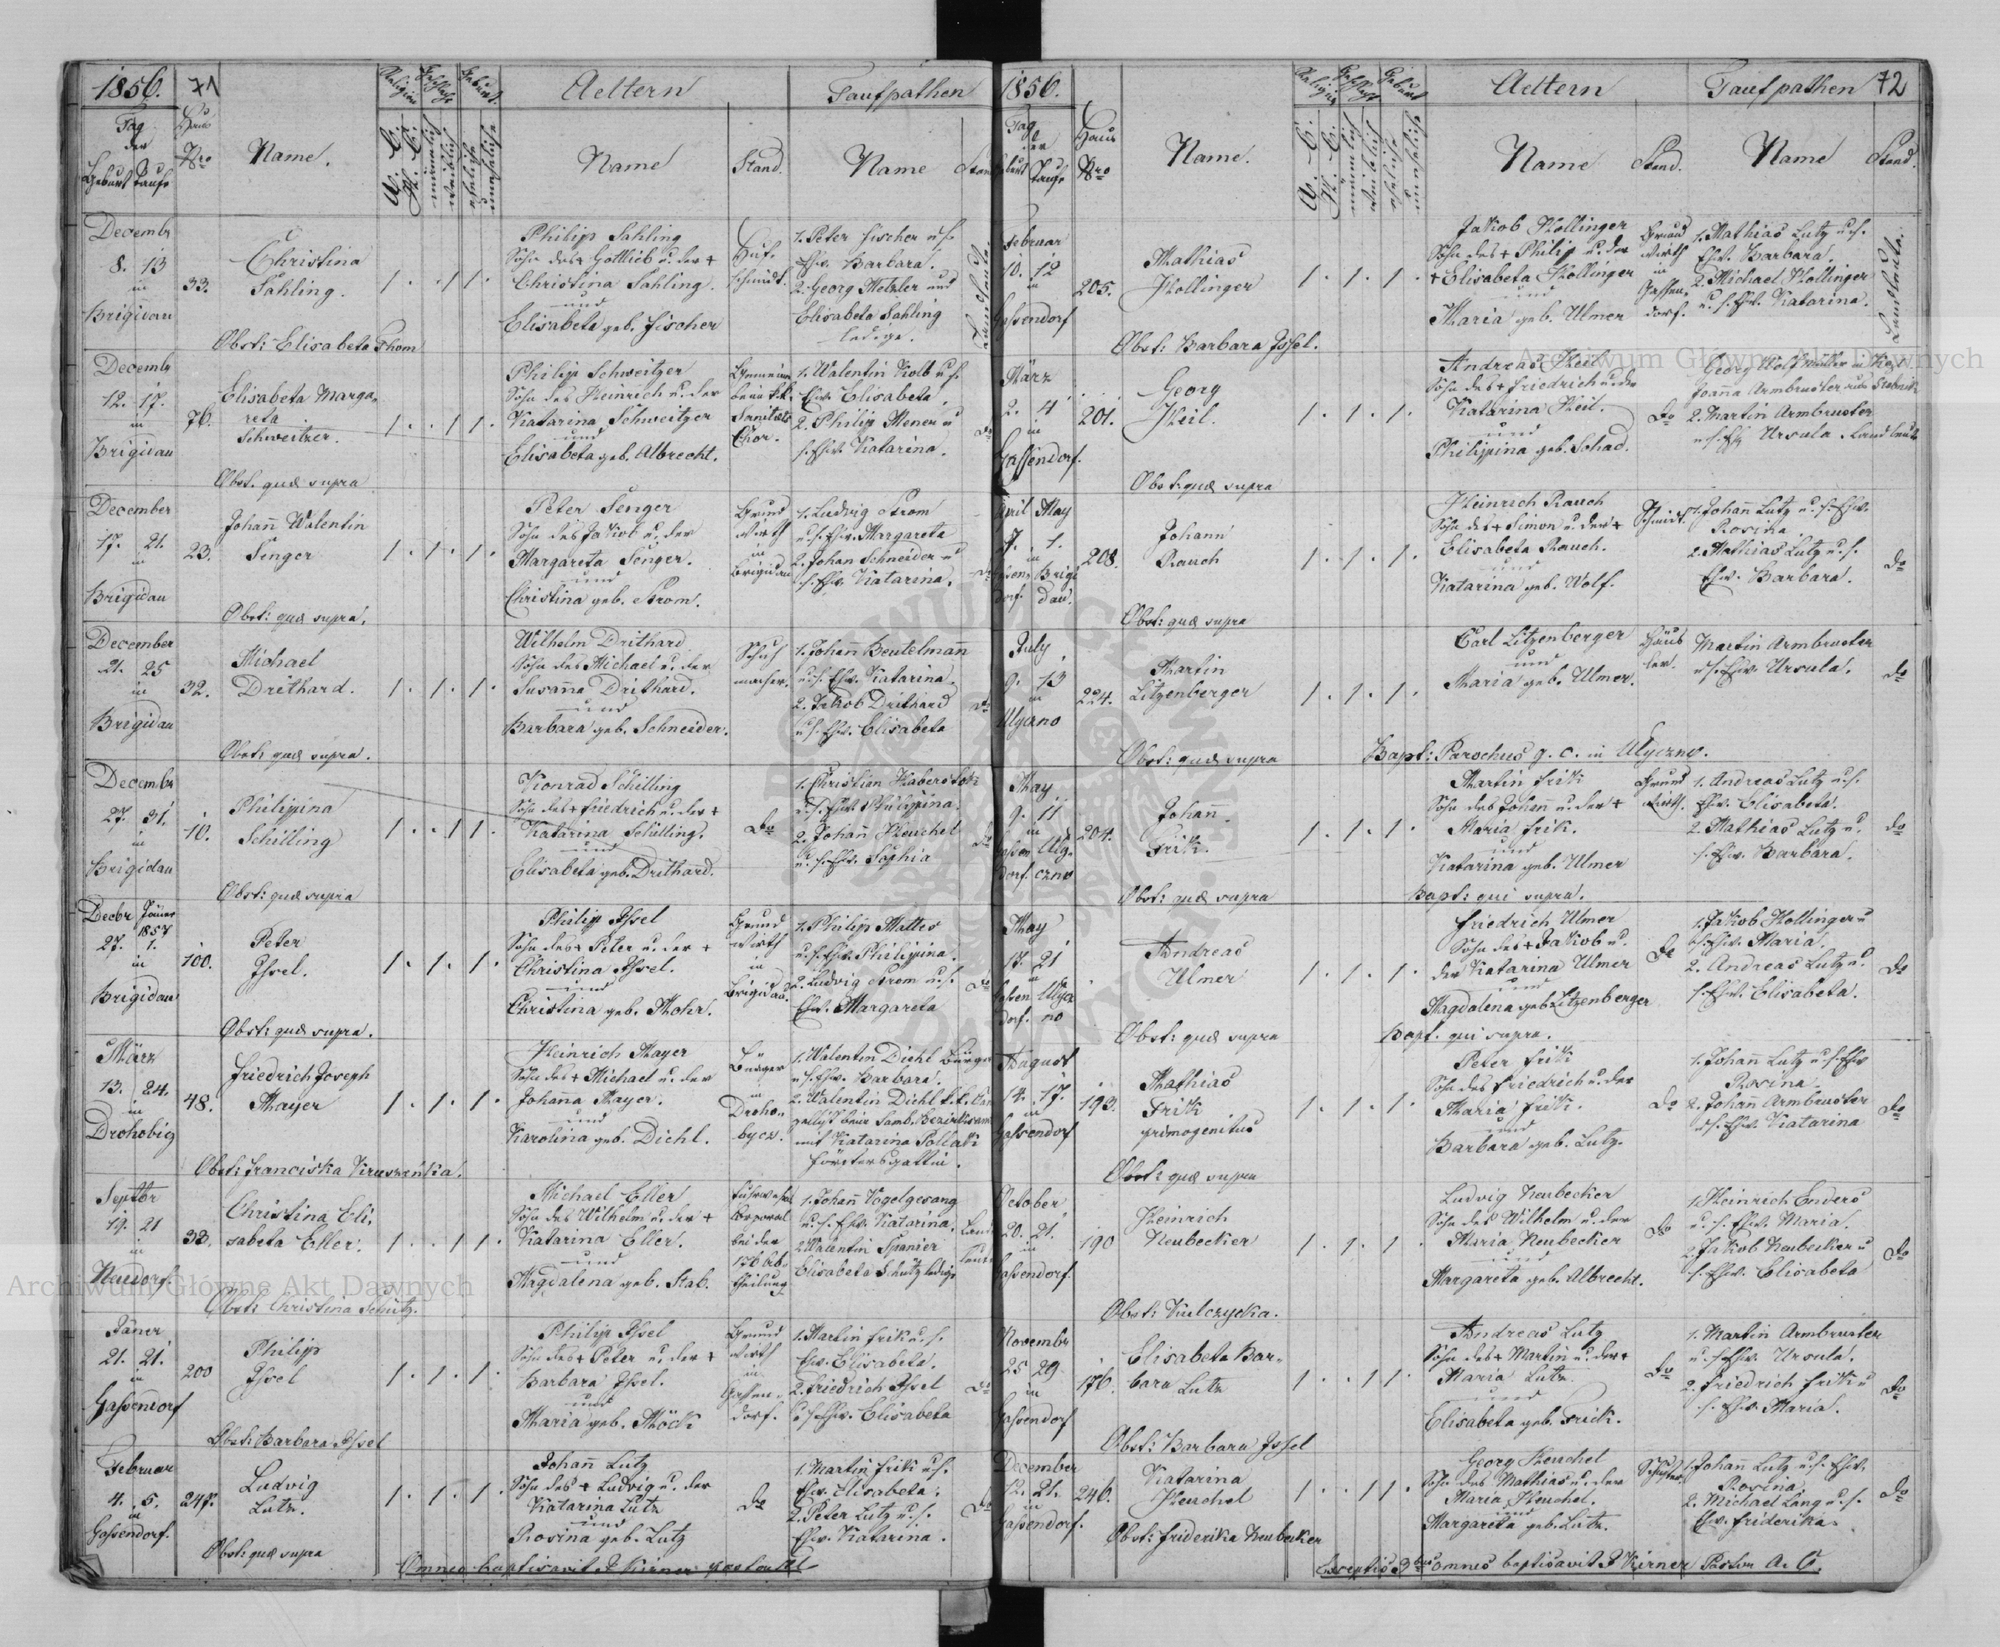 1856. 71
Religion Geschlecht Geburt
Aeltern
Taufpathen
Tag der Geburt Taufe
Haus Nro
Name.
A. C.
H. C.
männlich
weiblich
ehelich
unehelich
Name
Stand.
Name
Stand
Decembr
8. 13
in
Brigidau
33.
Christina
Sahling.
1. . 1 1.
Philipp Sahling
Sohn des + Gottlieb u. der +
Christina Sahling.
und
Elisabeta geb. Fischer
Huf-
schmidt.
1. Peter Fischer u. s.
Ehw. Barbara.
2. Georg Metzler und
Elisabeta Sahling
ledige.
Landleute.
Obst: Elisabeta Thom
Decembr
12. 17.
in
Brigidau
76.
Elisabeta Marga-
reta
Schweitzer.
1. . 1 1.
Philipp Schweitzer
Sohn des Heinrich u. der
Katarina Schweitzer
und
Elisabeta geb. Albrecht.
Gemeiner
beim k.k.
Sanitäts
Chor.
1. Valentin Kolb u. s.
Ehw. Elisabeta.
2. Philipp Menen u
s. Ehw. Katarina.
do
Obst. quæ supra
December
17. 21.
in
Brigidau
23.
Johann Valentin
Senger
1. 1. 1.
Peter Senger
Sohn des Jakob u. der
Margareta Senger.
und
Christina geb. Strom.
Grund
wirth
in
Brigidau
1. Ludvig Strom
u. s. Ehw. Margareta
2. Johan Schneider u
s. Ehw. Katarina.
do
Obst: quæ supra.
December
21. 25
in
Brigidau
32.
Michael
Drithard.
1. 1. 1.
Wilhelm Drithard
Sohn des Michael u. der
Susanna Drithard.
und
Barbara geb. Schneider.
Schuh
macher.
1. Johann Beutelmann
u. s. Ehw. Katarina.
2. Jakob Drithard
u. s. Ehw. Elisabeta
do
Obst: quæ supra.
Decembr
27. 31.
in
Brigidau
10.
Philippina
Schilling
1. . 1 1.
Konrad Schilling
Sohn des + Friedrich u. der +
Katarina Schilling.
und
Elisabeta geb. Drithard.
do
1. Christian Haberstok
u. s. Ehw. Philippina.
2. Johann Heuchel
u. s. Ehw. Sophia
do
Obst: quæ supra
Decbr Jäner
1857
27. 1.
in
Brigidau
100.
Peter
Issel.
1. 1. 1.
Philipp Issel
Sohn des + Peter u. der +
Christina Issel.
und
Christina geb. Mohr.
Grund
wirth
in
Brigidau.
1. Philipp Mattes
u. s. Ehw. Philippina.
2. Ludvig Strom u. s.
Ehw. Margareta
do
Obst: quæ supra.
März
13. 24.
in
Drohobiç
48.
Friedrich Joseph
Mayer
1. 1. 1.
Heinrich Mayer
Sohn des + Michael u. der
Johanna Mayer.
und
Karolina geb. Diehl.
Bürger
in
Droho-
bycz.
1. Valentin Diehl Bürger
u. s. Ehw. Barbara.
2. Valentin Diehl k. k.
mit Katarina Pollak
Försters gattin.
Obst: Franciska
Septbr
19. 21
in
Neudorf.
33.
Christina Eli-
sabeta Eller.
1. . 1 1.
Michael Eller
Sohn des Wilhelm u. der +
Katarina Eller.
und
Magdalena geb. Stab.
Fuhrwesens
Corporal
bei der
theilung
1. Johann Vogelgesang
u. s. Ehw. Katarina.
2. Valentin Spanier
Elisabeta Schütz ledige
Land
leute
Obst: Christina Schütz.
Jäner
21. 21.
in
Gassendorf
200
Philipp
Issel
1. 1. 1.
Philipp Issel
Sohn des + Peter u. der +
Barbara Issel.
und
Maria geb. Möck
Grund
wirth
in
Gassen-
dorf.
1. Martin Frik u. s.
Ehw. Elisabeta.
2. Friedrich Issel
u. s. Ehw. Elisabeta
do
Obst: Barbara Issel
Februar
4. 5.
in
Gassendorf.
247.
Ludvig
Lutz.
1. 1. 1.
Johann Lutz
Sohn des + Ludvig u. der
Katarina Lutz
und
Rosina geb. Lutz
do
1. Martin Frik u. s.
Ehw. Elisabeta.
2. Peter Lutz u. s.
Ehw. Katarina.
do
Obst: quæ supra
Omnes baptisavit J. Kirner pastor AC
1856.
Religion Geschlecht Geburt
Aeltern
Taufpathen 72
Tag der Geburt Taufe
Haus Nro
Name.
A. C.
H. C.
männlich
weiblich
ehelich
unehelich
Name
Stand.
Name
Stand.
Februar
10. 12
in
Gassendorf
205.
Mathias
Hollinger
1. 1. 1.
Jakob Hollinger
Sohn des + Philip u. der
+ Elisabeta Hollinger
und
Maria geb. Ulmer
Grund
wirth
in
Gassen-
dorf.
1. Mathias Lutz u. s.
Ehw. Barbara.
2. Michael Hollinger
u. s. Ehw. Katarina.
Landleute.
Obst: Barbara Issel.
März
2. 4
in
Gassendorf.
201.
Georg
Keil.
1. 1. 1.
Andreas Keil
Sohn des + Friedrich u. der
Katarina Keil.
und
Philippina geb. Schad.
do
Georg Wolf
Joanna Armbruster
2. Martin Armbruster
u. s. Ehw Ursula Landleute
Obst: quæ supra
April May
27. 1.
in
Gassen- Brigi
dorf. dau.
208.
Johann
Rauch
1. 1. 1.
Heinrich Rauch
Sohn des + Simon u. der +
Elisabeta Rauch.
und
Katarina geb. Wolf.
Schmidt.
1. Johann Lutz u. s. Ehw.
Rosina.
2. Mathias Lutz u. s.
Ehw. Barbara.
do
Obst: quæ supra
July
9. 13
in
Ulyczno
224.
Martin
Litzenberger
1. 1. 1.
Carl Litzenberger
und
Maria geb. Ulmer.
Häus
ler.
Martin Armbruster
u. s. Ehw Ursula.
do
Obst: quæ supra
Bapt: Parochus g. c. in Ulyczno.
May
9. 11
in
Gassen Uly-
dorf. czno
204.
Johann.
Frik.
1. 1. 1.
Martin Frik
Sohn des Johann u. der +
Maria Frik.
und
Katarina geb. Ulmer
Grund
wirth.
1. Andreas Lutz u. s.
Ehw. Elisabeta.
2. Mathias Lutz u.
s. Ehw. Barbara.
do
Obst: quæ supra
Bapt: qui supra.
May
17. 21
Gassen Ulycz
dorf. no
Andreas
Ulmer
1. 1. 1.
Friedrich Ulmer
Sohn des + Jakob u.
der Katarina Ulmer
und
Magdalena geb. Litzenberger
do
1. Jakob Hollinger u
s. Ehw. Maria.
2. Andreas Lutz u.
s. Ehw. Elisabeta.
do
Obst: quæ supra
Bapt. qui supra.
August
14. 17.
in
Gassendorf
193.
Mathias
Frik
primogenitus
1. 1. 1.
Peter Frik
Sohn des Friedrich u. der
Maria Frik.
und
Barbara geb. Lutz.
do
1. Johann Lutz u. s. Ehw
Rosina.
2. Johann Armbruster
u. s. Ehw. Katarina
do
Obst: quæ supra
October
20. 21.
in
Gassendorf.
190
Heinrich
Neubecker
1. 1. 1.
Ludvig Neubecker
Sohn des Wilhelm u. der
Maria Neubecker
und
Margareta geb. Albrecht.
do
1. Heinrich Enders
u. s. Ehw. Maria.
2. Jakob Neubecker u
s. Ehw. Elisabeta
do
Obst: Kulczycka.
Novembr
25 29
in
Gassendorf
176.
Elisabeta Bar-
bara Lutz
1. . 1 1.
Andreas Lutz
Sohn des + Martin u. der +
Maria Lutz
und
Elisabeta geb. Frick.
do
1. Martin Armbruster
u. s. Ehw. Ursula.
2. Friedrich Frik u
s. Ehw. Maria.
do
Obst: Barbara Issel
December
12. 21.
in
Gassendorf.
246.
Katarina
Heuchel
1. . 1 1.
Georg Heuchel
Sohn des Mathias u. der
Maria Heuchel.
und
Margareta geb. Lutz.
Schuster
1. Johann Lutz u. s. Ehw.
Rosina
2. Michael Lang u. s.
Ehw. Friderika
do
Obst: Friderika Neubecker
Exceptis 3bus omnes baptisavit J Kirner Pastor A. C.
Archiwum Główne Akt Dawnych
Archiwum Główne Akt Dawnych